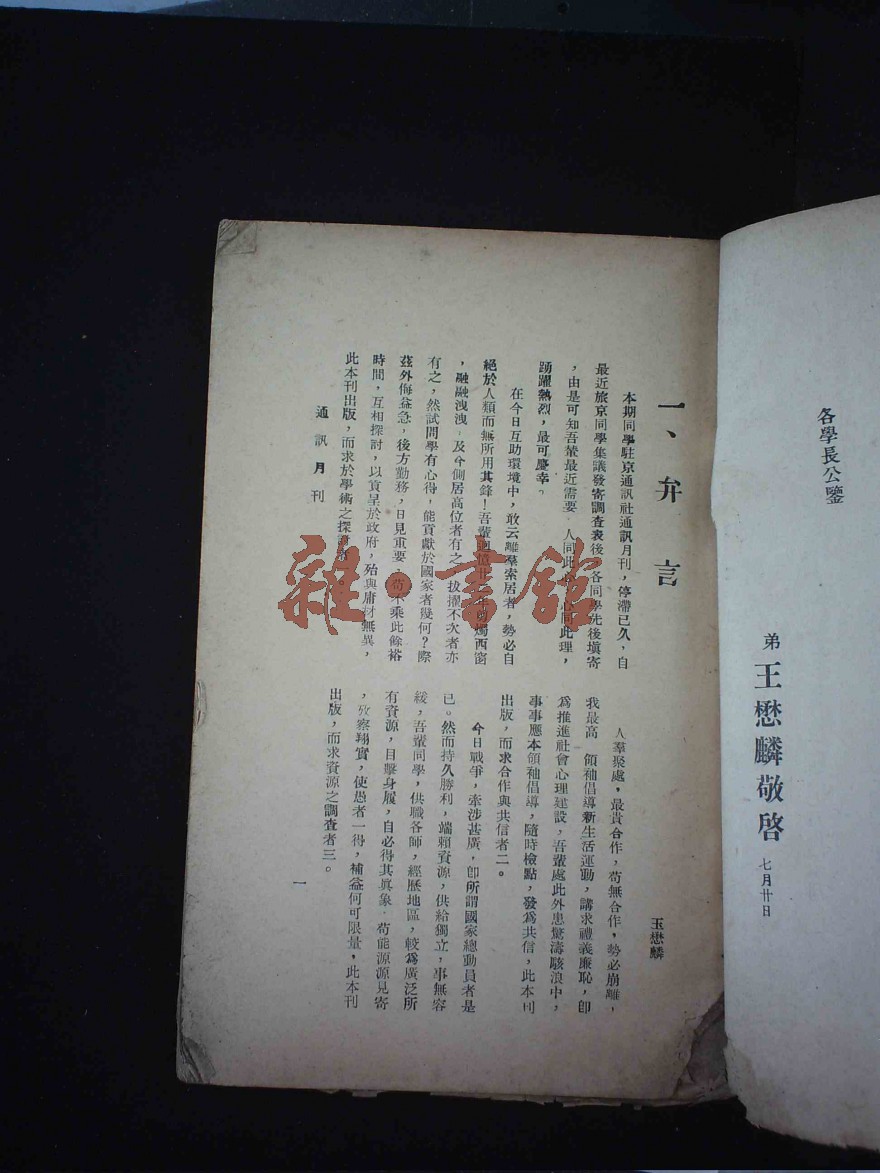 各學長公鑒
弟 王懋麟敬啓 七月廿日
一、弁言
王懋麟
本期同學駐京通訊社通訊月刊，停滯已久，自
最近旅京同學集議發寄調查表後，各同學先後塡寄
，由是可知吾輩最近需要 人同此心 心同此理，
踴躍熱烈，最可慶幸。
在今日互助環境中，敢云離羣索居者，勢必自
絕於人類而無所用其鋒！吾輩廿年 燭西窗
，融融洩洩 及今側居高位者有之 拔擢不次者亦
有之，然試問學有心得，能貢獻於國家者幾何？際
茲外侮益急，後方勤務，日見重要 苟不乘此餘裕
時間，互相探討，以貢呈於政府，殆與庸材無異，
此本刊出版，而求於學術之探討
人羣聚處，最貴合作，苟無合作，勢必崩離，
我最高 領袖倡導新生活運動，講求禮義廉恥，卽
爲推進社會心理建設，吾輩處此外患驚濤駭浪中，
事事應本領袖倡導，隨時檢點，發爲共信，此本刊
出版，而求合作與共信者二。
今日戰爭，牽涉甚廣，卽所謂國家總動員者是
已。然而持久勝利，端賴資源，供給獨立，事無容
緩，吾輩同學，供職各師，經歷地區，較爲廣泛所
有資源，目擊身履，自必得其眞象 苟能源源見寄
，攷察翔實，使愚者一得，補益何可限量，此本刊
出版，而求資源之調查者三。
通訊月刊
一
雜·書館